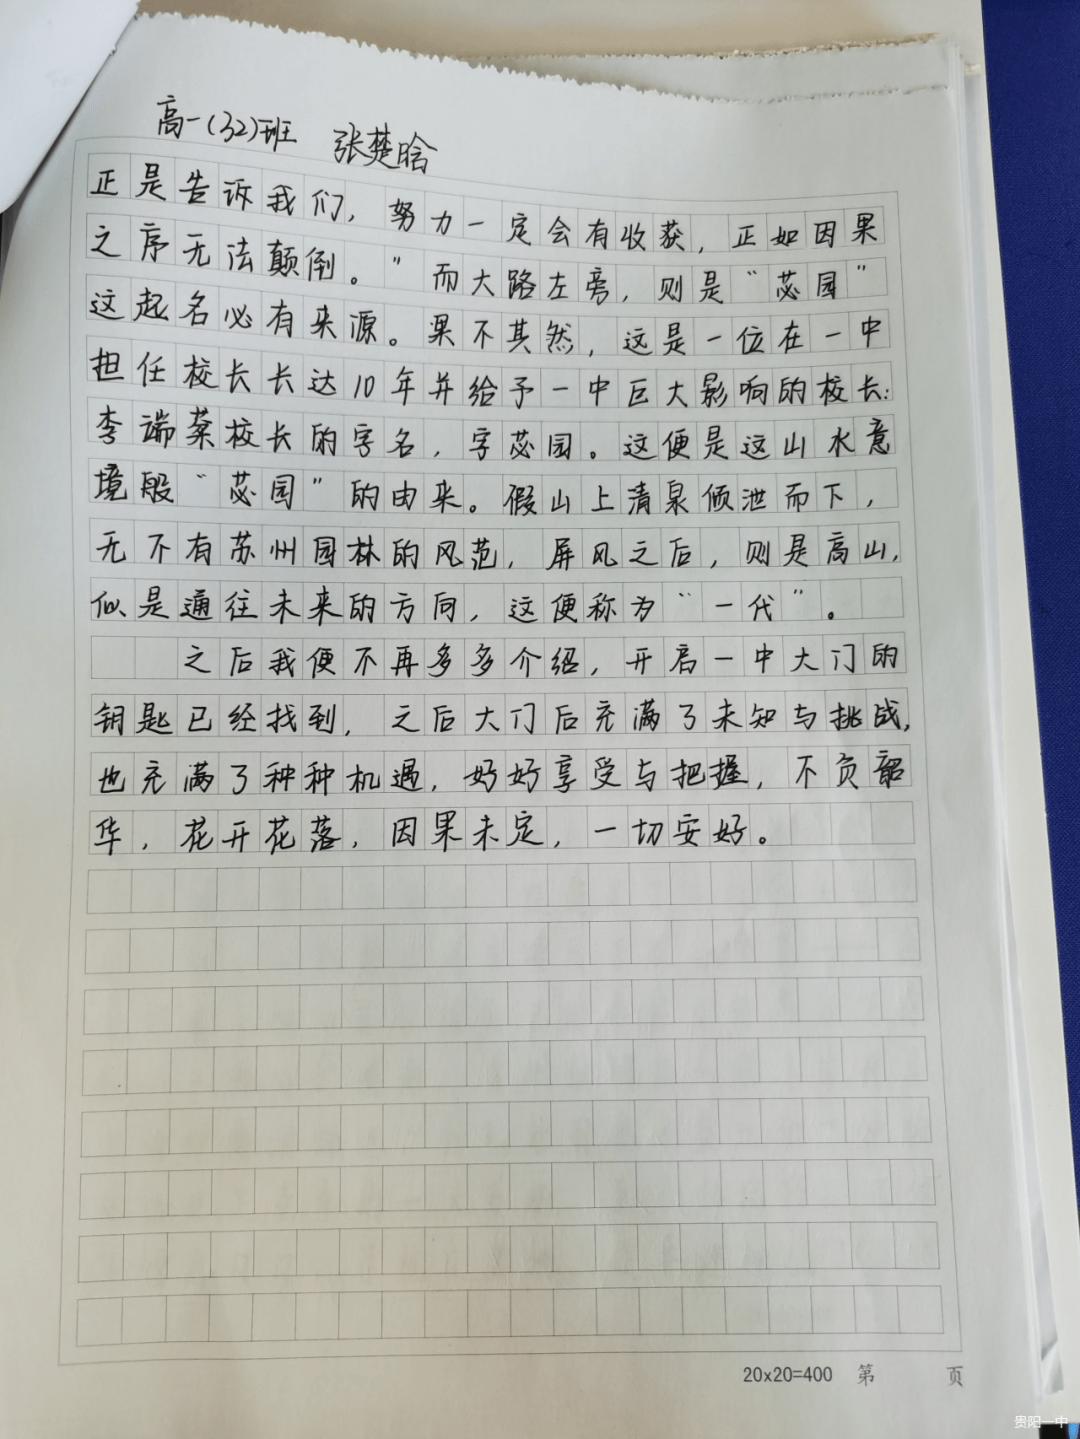 高一(32)班 张楚晗
正是告诉我们,努力一定会有收获,正如因果
之序无法颠倒。”而大路左旁,则是“苾园”
这起名必有来源。果不其然,这是一位在一中
担任校长长达10年并给予一中巨大影响的校长:
李端棻校长的字名,字苾园。这便是这山水意
境般“苾园”的由来。假山上清泉倾泄而下,
无不有苏州园林的风范,屏风之后,则是高山,
似是通往未来的方向,这便称为“一代”。
之后我便不再多多介绍,开启一中大门的
钥匙已经找到,之后大门后充满了未知与挑战,
也充满了种种机遇,好好享受与把握,不负韶
华,花开花落,因果未定,一切安好。
20x20=400 第 页
贵阳一中